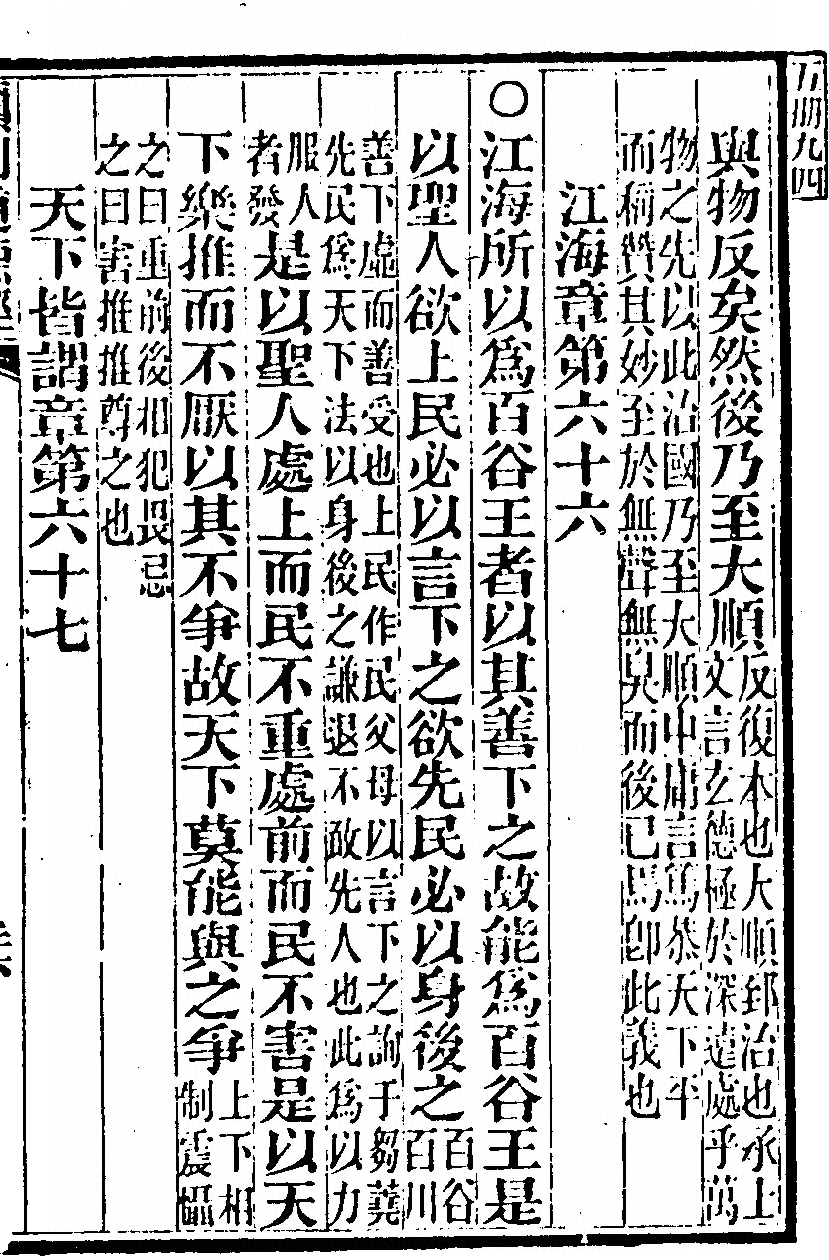 五册九四
與物反矣然後乃至大順
反復本也大順郅治也承上
文言玄德極於深遠處乎萬
物之先以此治國乃至大順中庸言篤恭天下平
而稱贊其妙至於無聲無臭而後已焉卽此義也
江海章第六十六
○江海所以爲百谷王者以其善下之故能爲百谷王是
以聖人欲上民必以言下之欲先民必以身後之
百谷
百川
善下虛而善受也上民作民父母以言下之詢于芻蕘
先民爲天下法以身後之謙退不敢先人也此爲以力
服人
者發
是以聖人處上而民不重處前而民不害是以天
下樂推而不厭以其不爭故天下莫能與之爭
上下相
制震懾
之曰重前後相犯畏忌
之曰害推推尊之也
天下皆謂章第六十七